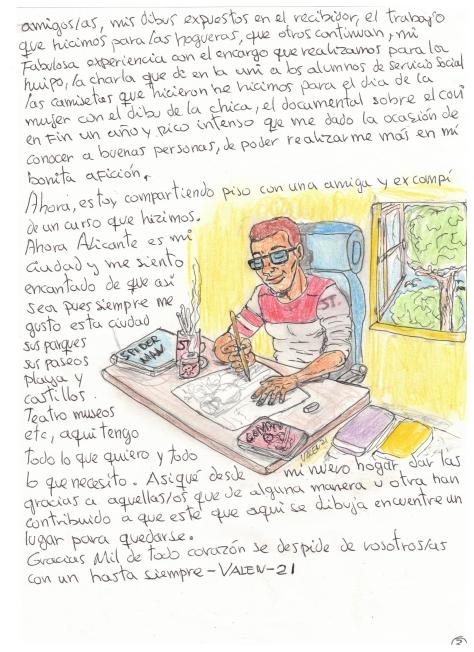 amigos/as, mis dibus expuestos en el recibidor, el trabajo
que hicimos para las hogueras, que otros continuan, mi
Fabulosa experiencia con el encargo que realizamos para los
huipo, la charla que di en la uni a los alumnos de Servicio Social
las camisetas que hicieron he hicimos para el dia de la
mujer con el dibu de la chica, el documental sobre el covi
en Fin un año y pico intenso que me dado la ocasión de
conocer a buenas personas, de poder realizarme más en mi
bonita afición.
Ahora, estoy compartiendo piso con una amiga y excompi
de un curso que hizimos.
Ahora Alicante es mi
ciudad y me siento
encantado de que asi
sea pues siempre me
gusto esta ciudad
sus parques
sus paseos
playa y
castillos.
Teatro museos
etc, aqui tengo
todo lo que quiero y todo
lo que necesito. Asi que desde mi nuevo hogar, dar las
gracias a aquellas/os que de alguna manera u otra han
contribuido a que este que aqui se dibuja encuentre un
lugar para quedarse.
Gracias Mil de todo corazón se despide de vosotros/as
con un hasta siempre - VALEN-21
SPIDER
MAN
ST.
ST.
COMIC
VALEN21